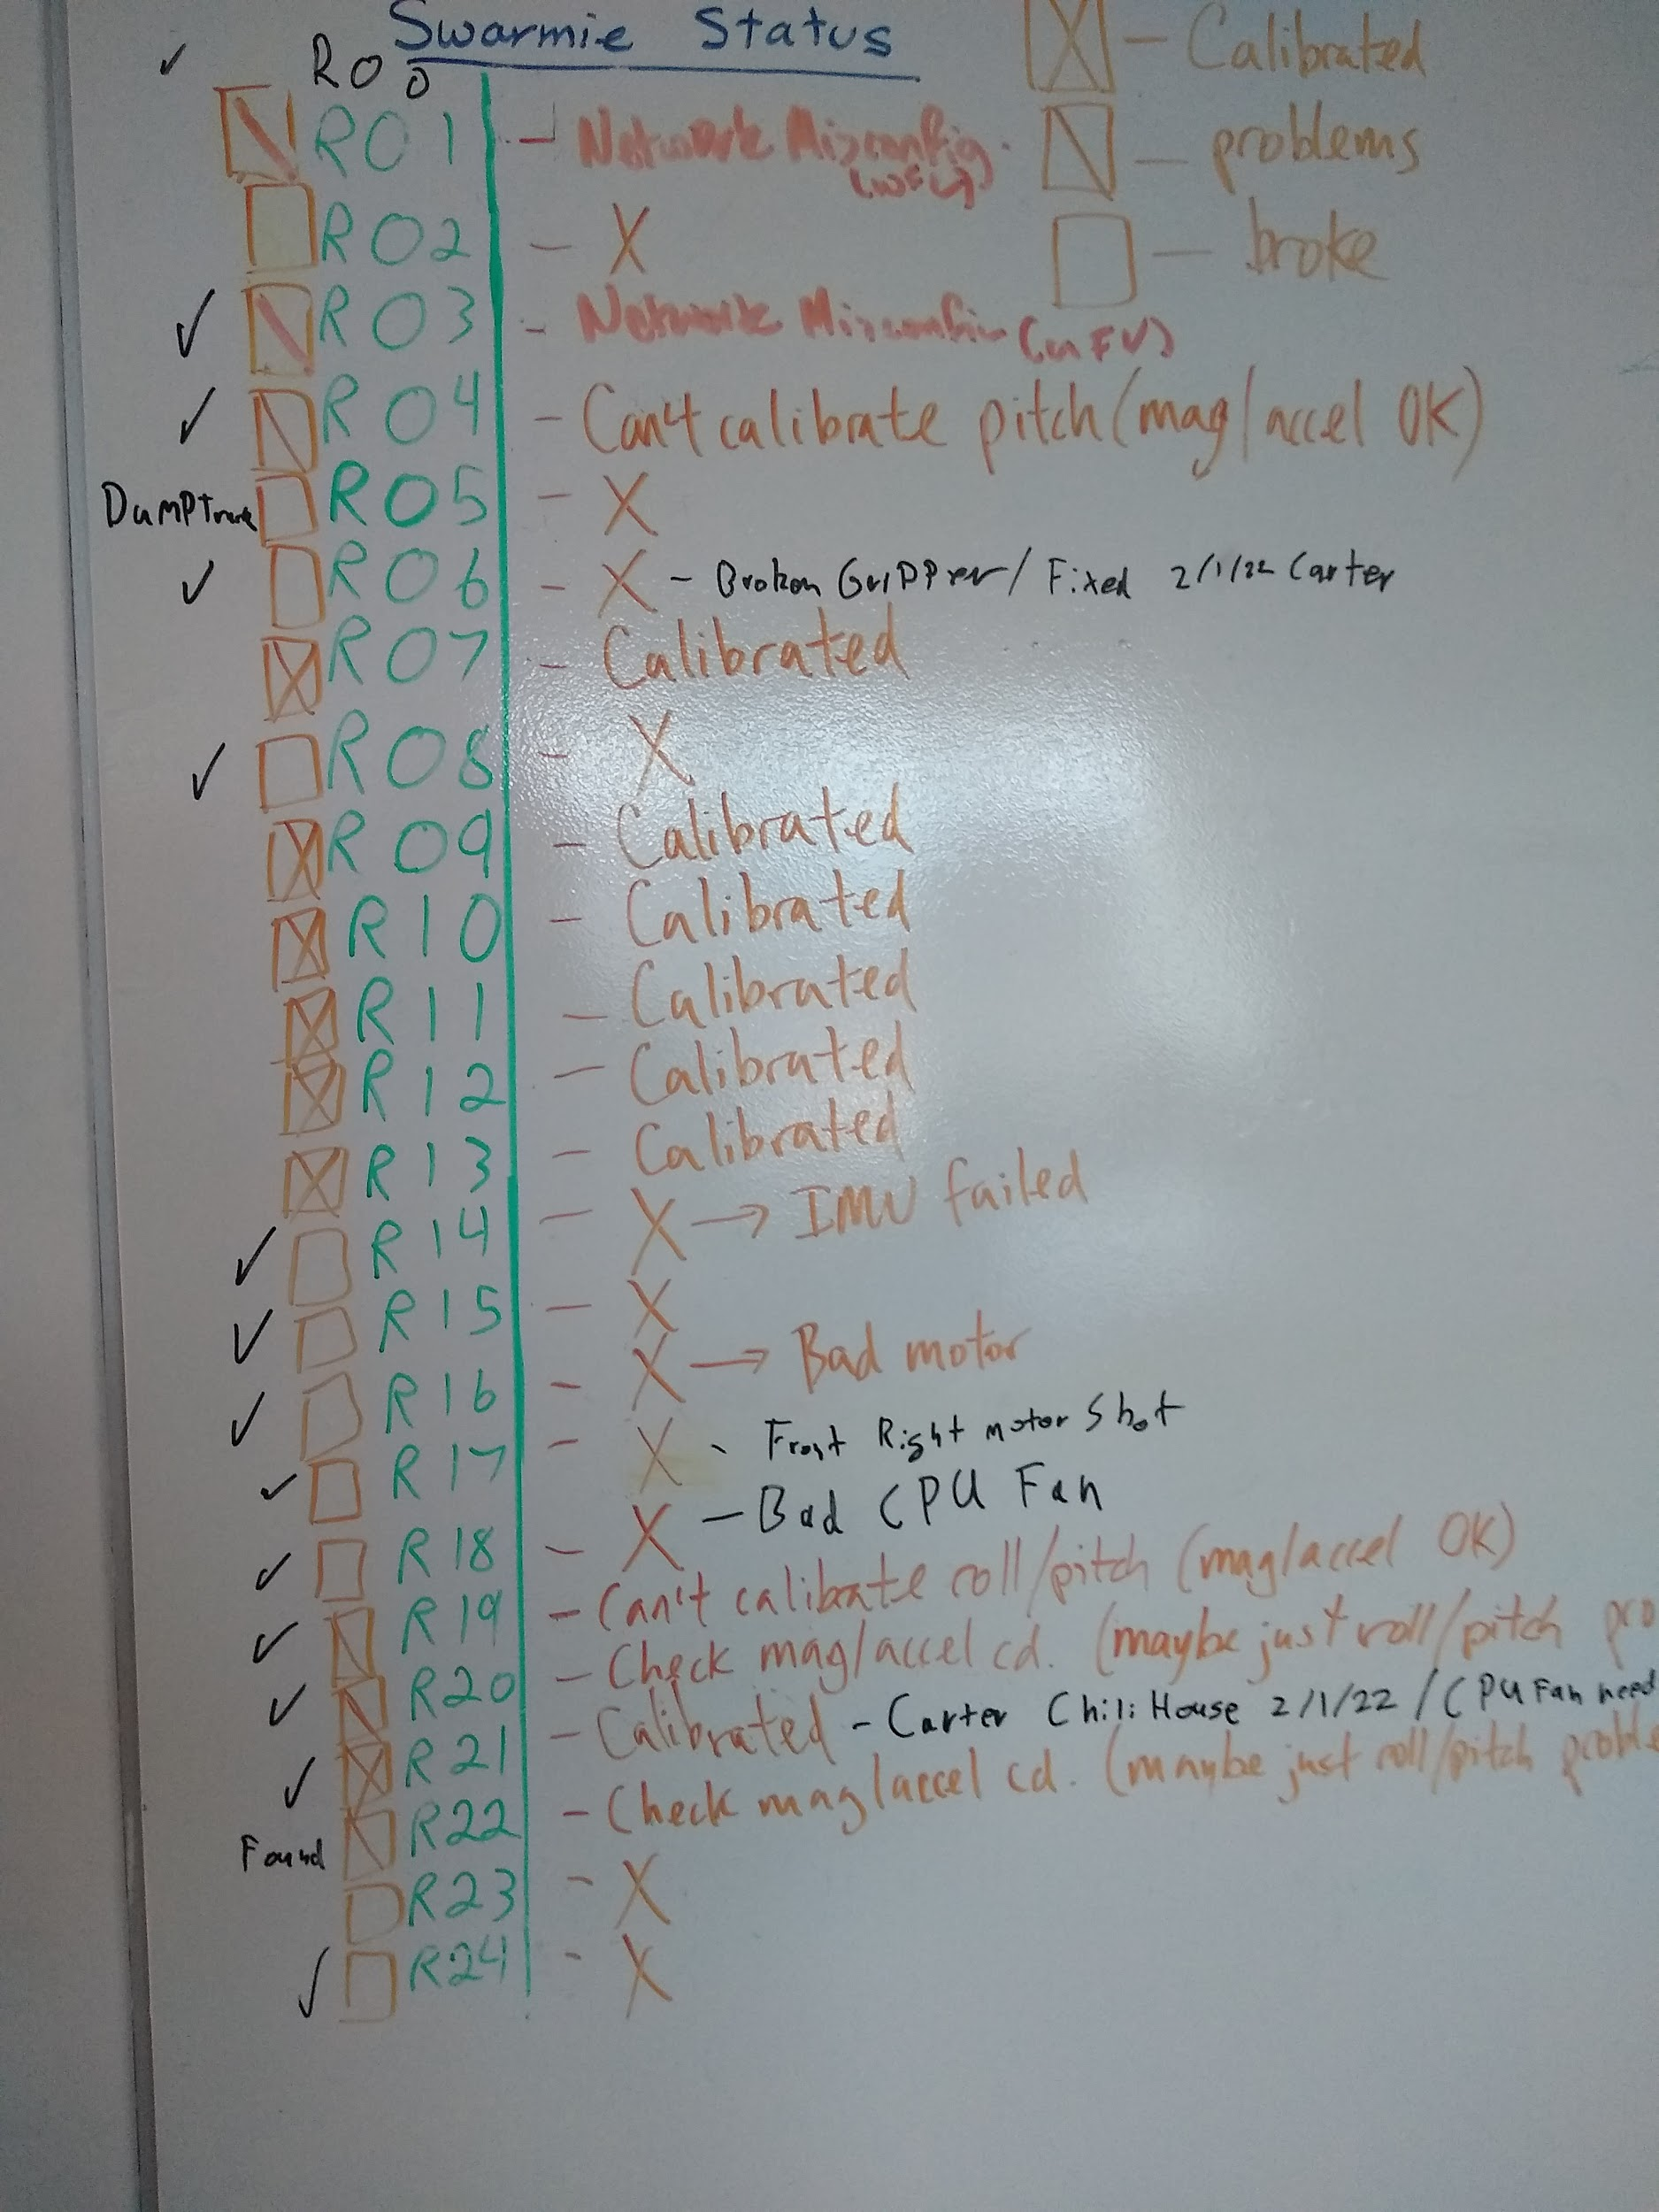 Swarmie Status
✓ R00
R01 - Network Misconfig.
R02 - X
✓ R03 - Network
✓ R04 - Can't calibrate pitch (mag/accel OK)
R05 - X
✓ R06 - X - Broken Gripper / Fixed 2/1/22 Carter
R07 - Calibrated
✓ R08 - X
R09 - Calibrated
R10 - Calibrated
R11 - Calibrated
R12 - Calibrated
R13 - Calibrated
✓ R14 - X → IMU failed
✓ R15 - X
✓ R16 - X → Bad motor
✓ R17 - X - Front Right motor Shot
✓ R18 - X - Bad CPU Fan
✓ R19 - Can't calibrate roll/pitch (mag/accel OK)
✓ R20 - Check mag/accel cd. (maybe just roll/pitch pro
✓ R21 - Calibrated - Carter Chili House 2/1/22 / CPU Fan need
Found R22 - Check mag/accel cd. (maybe just roll/pitch proble
R23 - X
✓ R24 - X
- Calibrated
- problems
- broke